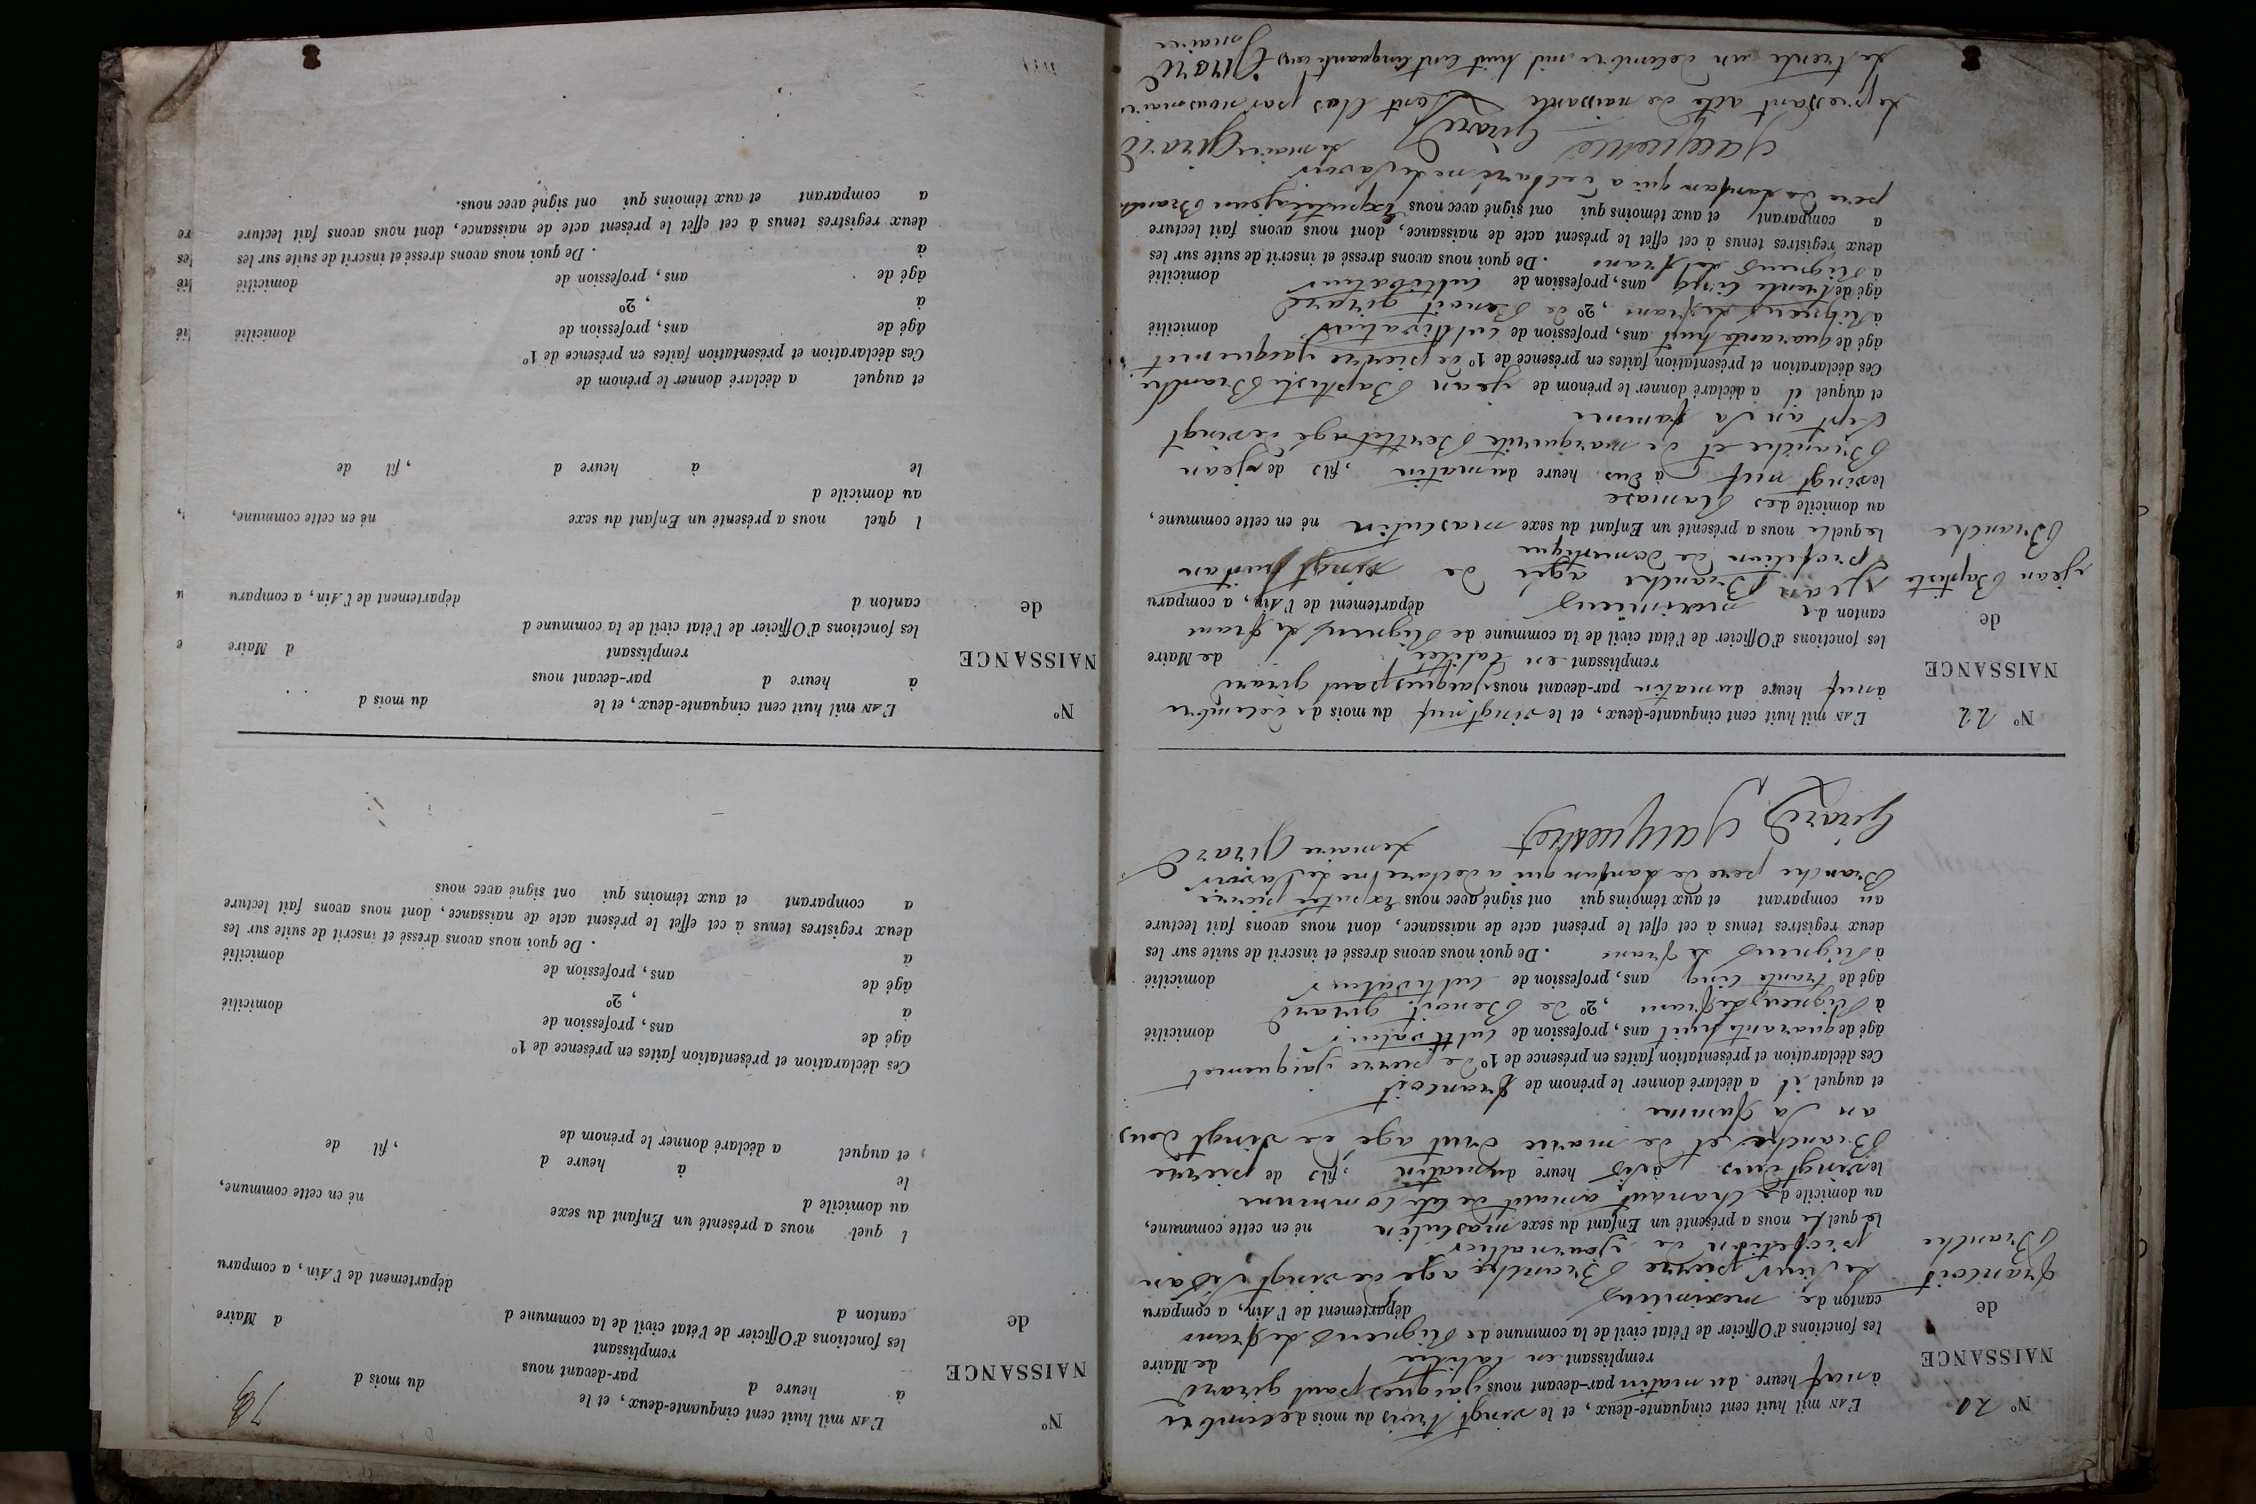 N° 21
NAISSANCE
de
francois
Branche
L'AN mil huit cent cinquante-deux, et le vingt trois du mois decembre
à neuf heure du matin par-devant nous jacques paul girard
remplissant en calitée de Maire
les fonctions d'Officier de l'état civil de la commune de Rigneux le franc
canton de meximieux département de l'Ain, a comparu
le sieur pierre Branche age de vingt an
profetion de journalier
lequel nous a présenté un Enfant du sexe masculin né en cette commune,
au domicile de de cete commune
le vingt heure du matin, fils de pierre
Branche et de marie age de vingt deux
an sa famme
et auquel il a déclaré donner le prénom de francois
Ces déclaration et présentation faites en présence de 1° de pierre jaquemet
âgé de quarante huit ans, profession de cultivateur domicilié
à Rigneux le franc, 2° de Benoit girard
âgé de trante cinq ans, profession de cultivateur domicilié
à Rigneux le franc. De quoi nous avons dressé et inscrit de suite sur les
deux registres tenus à cet effet le présent acte de naissance, dont nous avons fait lecture
au comparant et aux témoins qui ont signé avec nous pierre
Branche pere de lanfan qui a declare ne le savoir
Girard Jacquemet le maire Girard
N° 22
NAISSANCE
de
jean Baptiste
Branche
L'AN mil huit cent cinquante-deux, et le vingt neuf du mois de decembre
à neuf heure du matin par-devant nous jacques paul girard
remplissant en calitée de Maire
les fonctions d'Officier de l'état civil de la commune de Rigneux le franc
canton de meximieux département de l'Ain, a comparu
jean Branche agée de vingt huit an
profetion de domestique
lequele nous a présenté un Enfant du sexe masculin né en cette commune,
au domicile des
le vingt neuf à heure du matin, fils de jean
Branche et de marguerite agé de vingt
sept an sa famme
et auquel il a déclaré donner le prénom de jean Baptiste Branche
Ces déclaration et présentation faites en présence de 1° de pierre jaquemet
âgé de quarante huit ans, profession de cultivateur domicilié
à Rigneux le franc, 2° de Benoit girard
âgé de trente cinq ans, profession de cultivateur domicilié
à Rigneux le franc. De quoi nous avons dressé et inscrit de suite sur les
deux registres tenus à cet effet le présent acte de naissance, dont nous avons fait lecture
a comparant et aux témoins qui ont signé avec nous jean Branche
pere de lanfan qui a declaré ne le savoir
Jacquemet Girard le maire Girard
le pressant acte de naissance clos par nous maire
le trente un decembre mil huit cent cinquante deux Girard
maire
78
N°
NAISSANCE
de
L'AN mil huit cent cinquante-deux, et le du mois d
à heure d par-devant nous
remplissant d Maire
les fonctions d'Officier de l'état civil de la commune d
canton d département de l'Ain, a comparu
l quel nous a présenté un Enfant du sexe né en cette commune,
au domicile d
le à heure d , fil de
et auquel a déclaré donner le prénom de
Ces déclaration et présentation faites en présence de 1°
âgé de ans, profession de domicilié
à , 2°
âgé de ans, profession de domicilié
à . De quoi nous avons dressé et inscrit de suite sur les
deux registres tenus à cet effet le présent acte de naissance, dont nous avons fait lecture
a comparant et aux témoins qui ont signé avec nous
N°
NAISSANCE
de
L'AN mil huit cent cinquante-deux, et le du mois d
à heure d par-devant nous
remplissant d Maire
les fonctions d'Officier de l'état civil de la commune d
canton d département de l'Ain, a comparu
l quel nous a présenté un Enfant du sexe né en cette commune,
au domicile d
le à heure d , fil de
et auquel a déclaré donner le prénom de
Ces déclaration et présentation faites en présence de 1°
âgé de ans, profession de domicilié
à , 2°
âgé de ans, profession de domicilié
à . De quoi nous avons dressé et inscrit de suite sur les
deux registres tenus à cet effet le présent acte de naissance, dont nous avons fait lecture
a comparant et aux témoins qui ont signé avec nous.